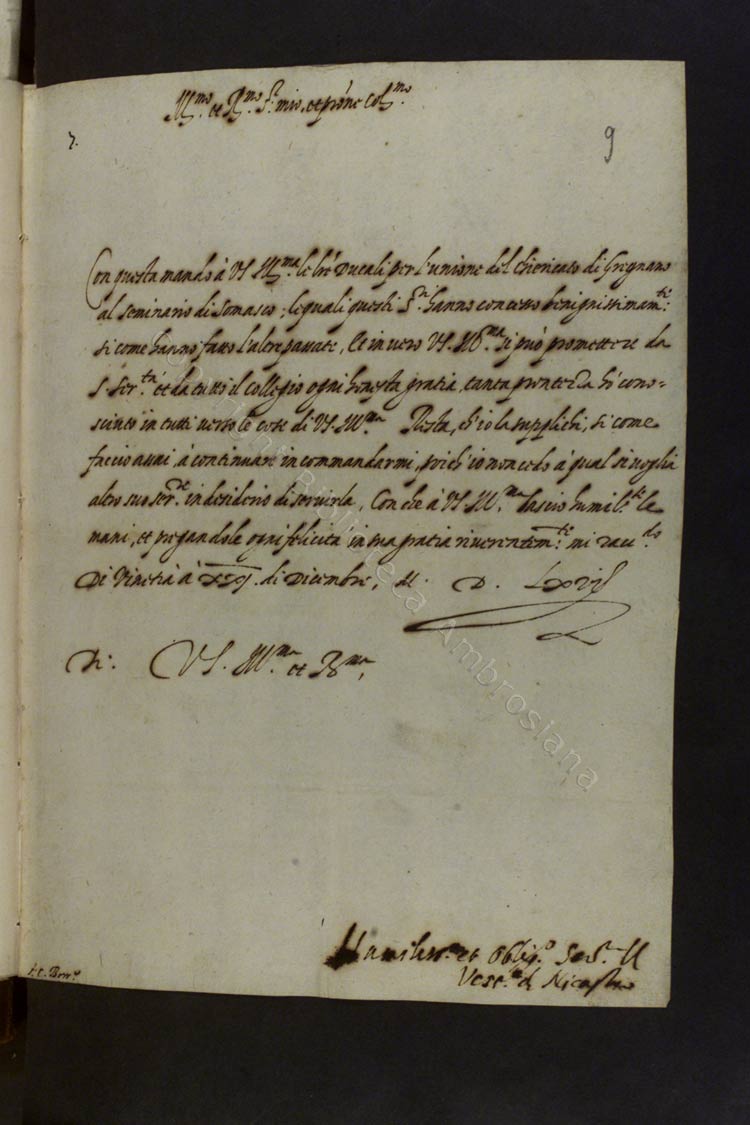 Ill.mo et R.mo S.r mio, et pron̄e Col.mo
7.
9
Con questa mando à VS Ill.ma le lr̄e Ducali per l'unione del Chiericato di Gregnano
al seminario di Somasco; lequali questi S.ri hanno concesso benignissimam.te
si come hanno fatto l'altre passate, Et in vero VS. Ill.ma si può promettere da
S. Ser.tà et da tutto il collegio ogni honesta gratia, tanta prontezza hò cono-
sciuto in tutti verso le cose di VS. Ill.ma Resta, ch'io la supplichi, si come
faccio assai à continuare in commandarmi, poich'io non cedo à qual si voglia
altro suo ser.re in desiderio di servirla, Con che à VS. Ill.ma bascio humil.te le
mani, et pregandole ogni felicità in sua gratia riverentem.te mi racc.do
Di Vinetia à XXI. di Dicembre, M. D. LXVII
Di. VS. Ill.ma et R.ma,
Humiliss.o et oblig.o Ser.r Il
Vesc.o di Nicastro
A. C. Borr.o
Biblioteca Ambrosiana